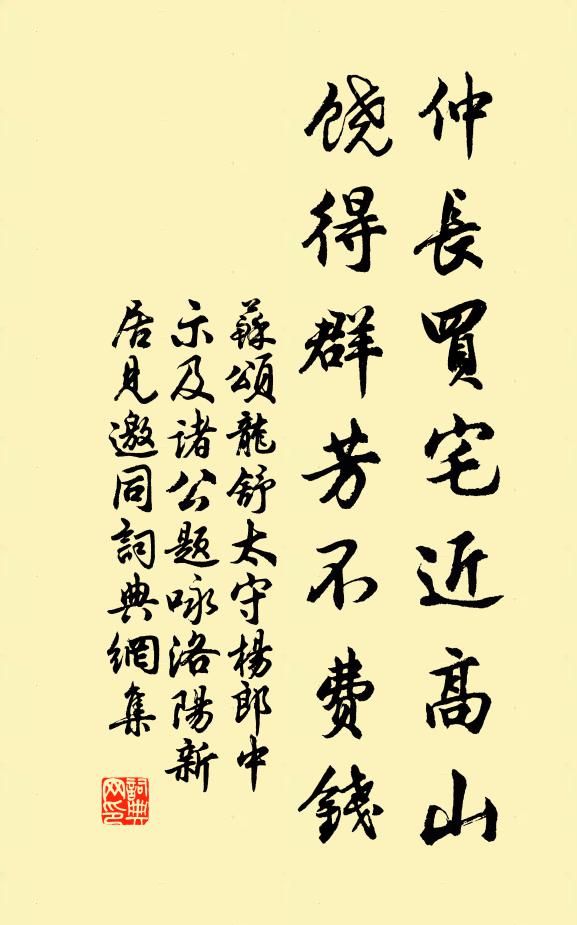 仲長買宅近高山
饶得群芳不費錢
蘇頌龍舒太守楊郎中
示及諸公題咏洛陽新
居見邀同詞典網集
詞典网印